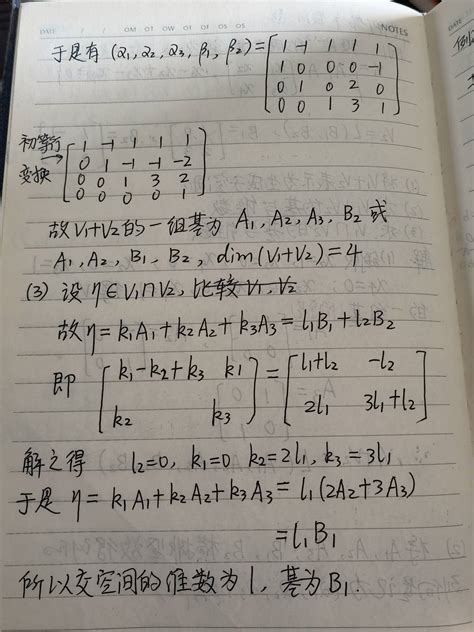 DATE / / OM OT OW OT OF OS OS NOTES
于是有 (α₁, α₂, α₃, β₁, β₂) = [1 -1 1 1 1
1 0 0 0 -1
0 1 0 2 0
0 0 1 3 1]
初等行变换→ [1 -1 1 1 1
0 1 -1 -1 -2
0 0 1 3 2
0 0 0 0 1]
故V₁+V₂的一组基为 A₁, A₂, A₃, B₂ 或
A₁, A₂, B₁, B₂, dim(V₁+V₂)=4
(3) 设 η∈V₁∩V₂, 比较V₁, V₂
故η=k₁A₁+k₂A₂+k₃A₃=l₁B₁+l₂B₂
即 [k₁-k₂+k₃ k₁
k₂ k₃] = [l₁+l₂ -l₂
2l₁ 3l₁+l₂]
解之得 l₂=0, k₁=0, k₂=2l₁, k₃=3l₁
于是 η=k₁A₁+k₂A₂+k₃A₃=l₁(2A₂+3A₃)
=l₁B₁
所以交空间的维数为1, 基为B₁.